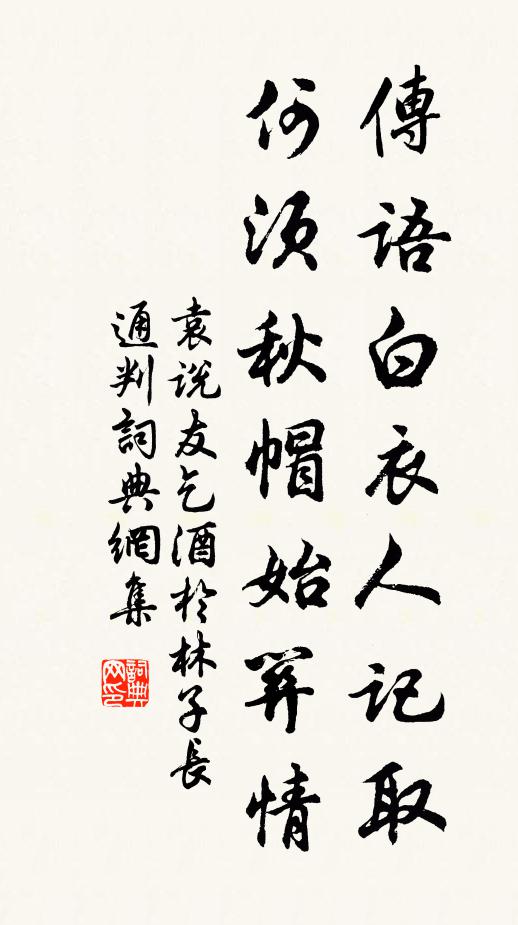 傳語白衣人記取
何須秋帽始筭情
袁説友乞酒於林子長
通判詞典網集
詞典网印